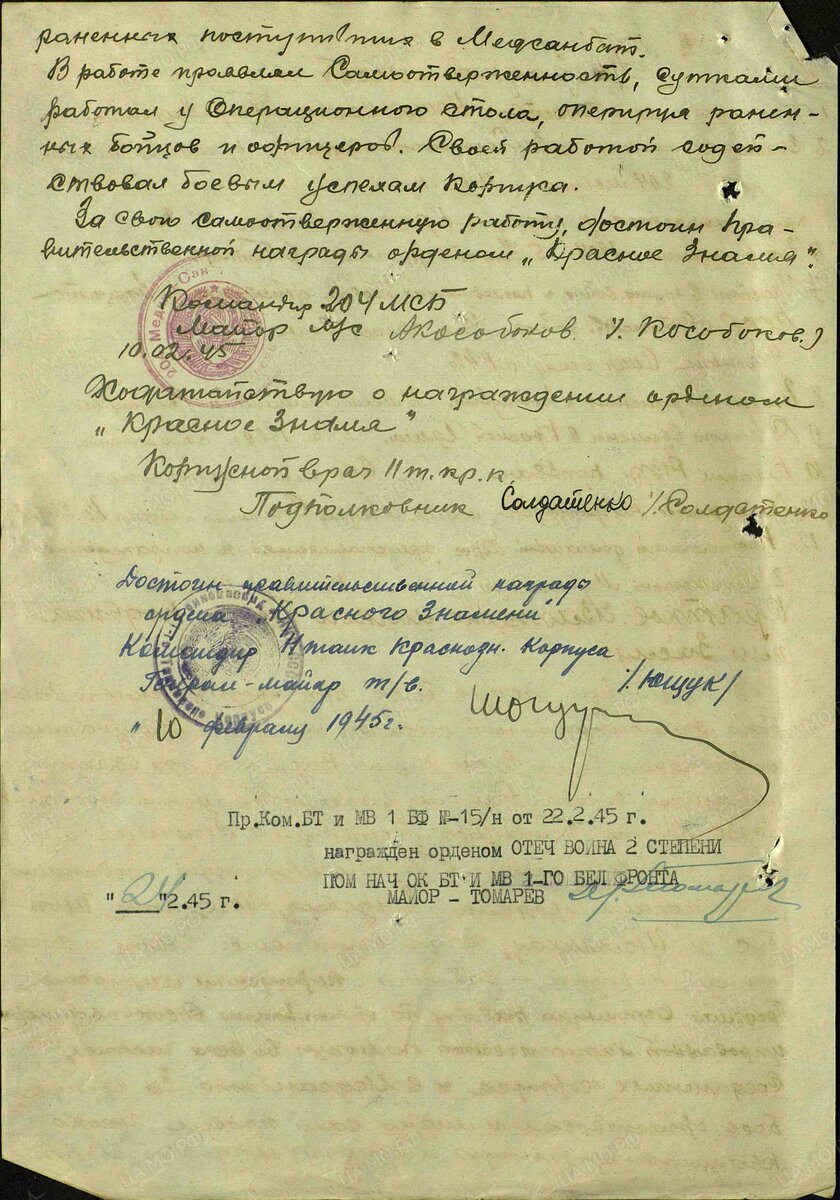 раненных поступивших в Медсанбат.
В работе проявлял Самоотверженность, сутками
работал у Операционного стола, оперируя ранен-
ных бойцов и офицеров. Своей работой содей-
ствовал боевым успехам Корпуса.
За свою самоотверженную работу, достоин Пра-
вительственной награды орденом „Красное Знамя".
Командир 204 МСБ
Майор м/с Акособоков /Кособоков/
10.02.45
Ходатайствую о награждении орденом
„Красное Знамя"
Корпусной врач 11 т.кр.к.
Подполковник Солдатенко /Солдатенко
Достоин правительственной награды
ордена „Красного Знамени"
Командир 11 танк Краснозн. Корпуса
Генерал-майор т/в. /Ющук/
„10 февраля 1945г.
Пр.Ком.БТ и МВ 1 БФ №-15/н от 22.2.45 г.
награжден орденом ОТЕЧ ВОЙНА 2 СТЕПЕНИ
ПОМ НАЧ ОК БТ И МВ 1-ГО БЕЛ ФРОНТА
"24"2.45 г. МАЙОР - ТОМАРЕВ